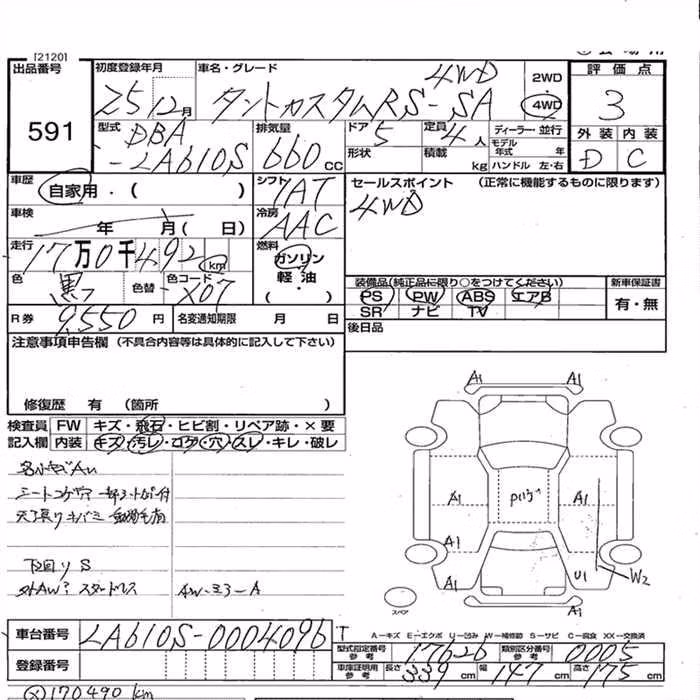 [2120]
出品番号
591
初度登録年月
25 12月
車名・グレード
4WD
タントカスタムRS-SA
2WD
4WD
評価点
3
外装 内装
D C
型式
DBA
-LA610S
排気量
660cc
ドア 5
形状
定員 4人
積載 kg
ディーラー・並行
モデル年式 年
ハンドル 左・右
車歴
自家用・( )
シフト
IAT
セールスポイント (正常に機能するものに限ります)
4WD
車検
年 月( 日)
冷房
AAC
走行
17万0千492km
燃料
ガソリン
軽油
・
( )
色
黒
色替
色コード
X07
装備品(純正品に限り○をつけてください)
PS PW ABS エアB
SR ナビ TV
新車保証書
有・無
R券
9,550円
名変通知期限 月 日
後日品
注意事項申告欄(不具合内容等は具体的に記入して下さい)
修復歴 有(箇所 )
検査員
記入欄
FW キズ・飛石・ヒビ割・リペア跡・×要
内装 キズ・汚レ・コゲ・穴・スレ・キレ・破レ
下回り S
スタッドレス
AW-ミラーA
A1 A1
A1 A1
A1
A1 U1 W2
A1
スペア
車台番号
LA610S-0004096
登録番号
A-キズ E-エクボ U-凹み W-補修跡 S-サビ C-腐食 XX-交換済
型式指定番号
参考
17620
類別区分番号
参考
0005
車庫証明用
参考
長さ 339cm 幅 147cm 高さ 175cm
(X)170490km